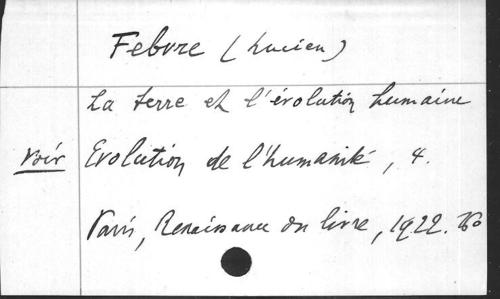 Febvre (Lucien)
La terre et l'évolution humaine
Voir Evolution de l'humanité, 4.
Paris, Renaissance du livre, 1922. 8°